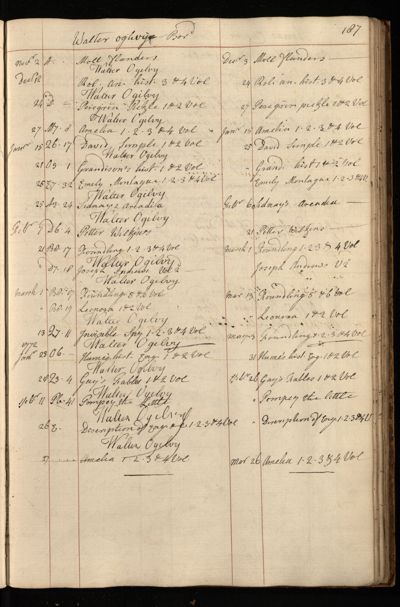 187
Walter ogilvy Bor^r
Moll flanders Dec^r 3 Moll flanders
Walter Ogilvy
Rol: an. hist. 3 & 4 Vol 24 Rol: an. hist. 3 & 4 Vol
Walter Ogilvy
24 Peregrin Pickle 1 & 2 Vol 27 Peregrin pickle 1 & 2 Vol
Walter Ogilvy
27 Amelia 1-2-3 & 4 Vol Jan^r 15 Amelia 1-2-3 & 4 Vol
Jan^r 15 26-17 David Simple 1 & 2 Vol 25 David Simple 1 & 2 Vol
Walter Ogilvy
21 Grandison's hist. 1 & 2 Vol Grand: hist 1 & 2 Vol
25 32 Emily Montague 1-2-3 & 4 Vol Emily Montague 1-2-3 & 4
Walter Ogilvy
25 24 Sidnays Arcadia feb^r 6 Sidnays Arcadia
Walter Ogilvy
feb^r D6 4 Petter Wilkins 21 Petter Wilkins
21 17 foundling 1-2-3 & 4 Vol March 1 foundling 1-2-3 & 4 Vol
Walter Ogilvy
18 Joseph Andrews Vol 2 Joseph Andrews V 2
Walter Ogilvy
March 1 17 foundling 5 & 6 Vol Mar 13 foundling 5 & 6 Vol
19 Leonora 1 & 2 Vol Leonora 1 & 2 Vol
Walter Ogilvy
13 27-11 Invisible Spy 1-2-3 & 4 Vol
1772 Walter Ogilvy
Jan^r 23 06 Humes hist. Eng: 1 & 2 Vol 31 Humes hist Eng: 1 & 2 Vol
Walter Ogilvy
29 23-4 Gay's fables 1 & 2 Vol Gay's fables 1 & 2 Vol
Walter Ogilvy
feb^r 11 41 Pompey the little Pompey the little
Walter Ogilvy
26 Description of Eng: 1-2-3 & 4 Vol Description of Eng: 1-2-3 & 4 V
Walter Ogilvy
27 Amelia 1-2-3 & 4 Vol Mar 26 Amelia 1-2-3 & 4 Vol